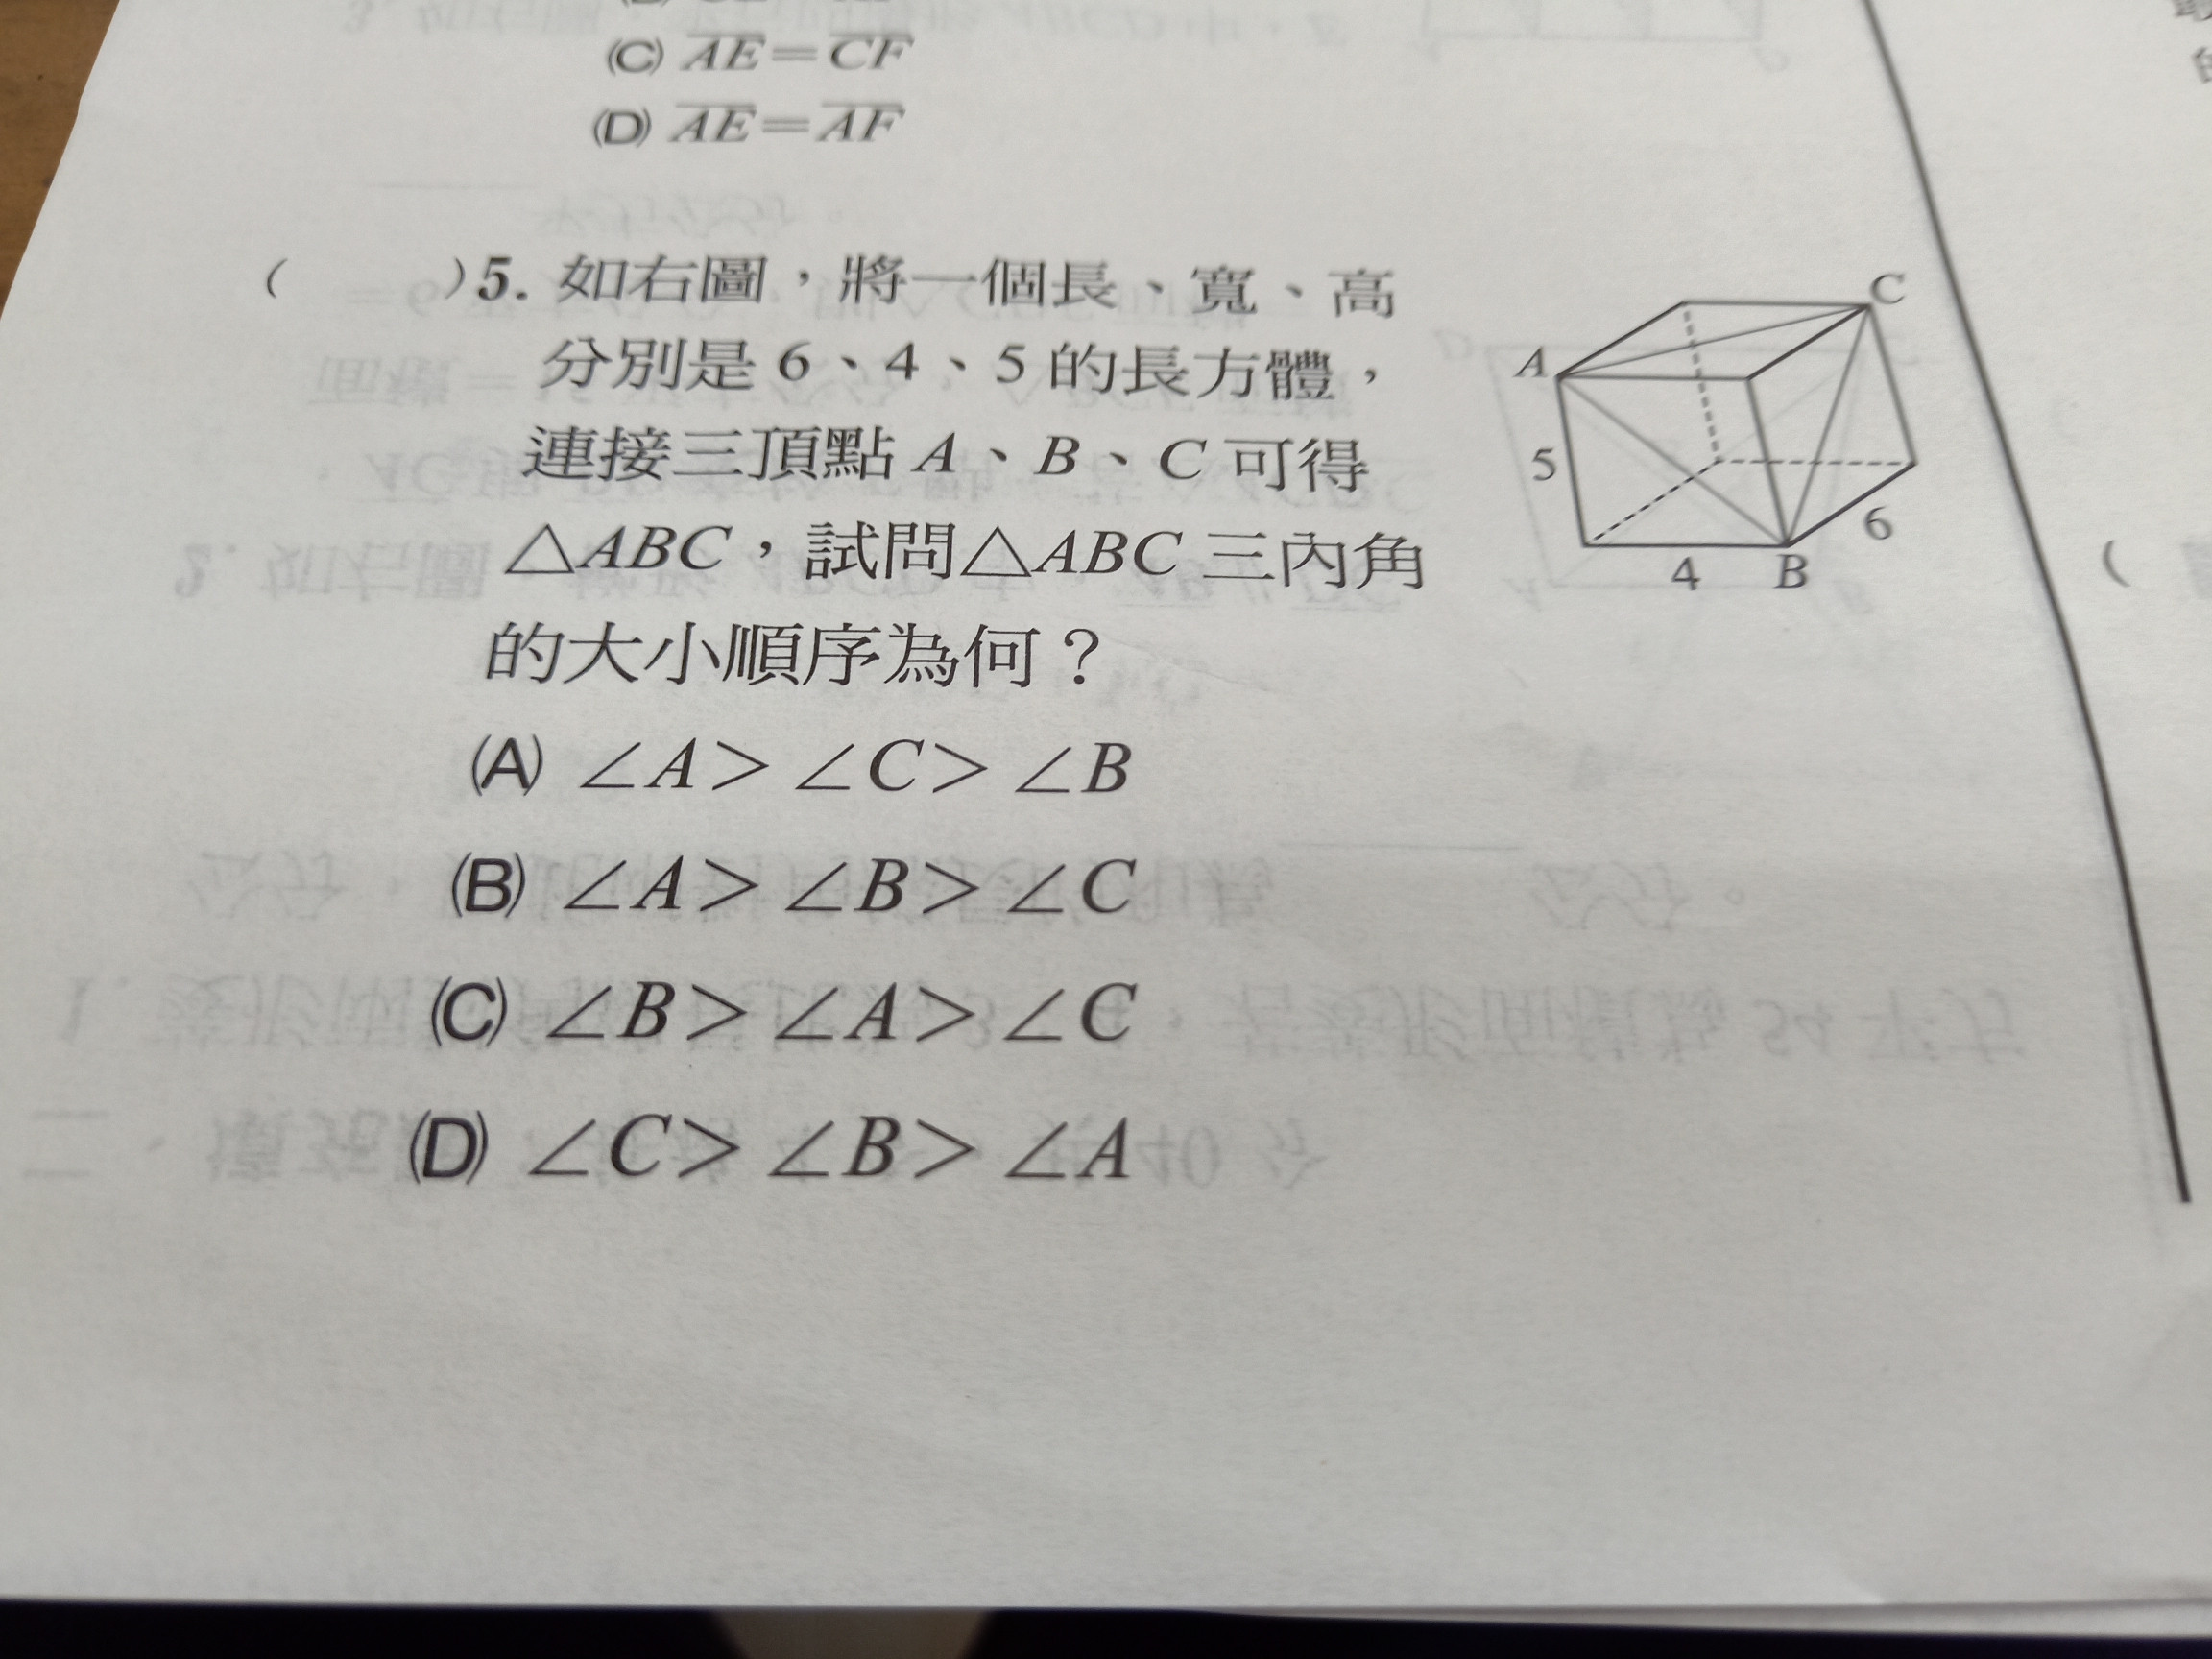 (C) AE=CF
(D) AE=AF
( )5. 如右圖，將一個長、寬、高
分別是 6、4、5 的長方體，
連接三頂點 A、B、C 可得
△ABC，試問△ABC 三內角
的大小順序為何？
A
C
5
4
B
6
(A) ∠A>∠C>∠B
(B) ∠A>∠B>∠C
(C) ∠B>∠A>∠C
(D) ∠C>∠B>∠A